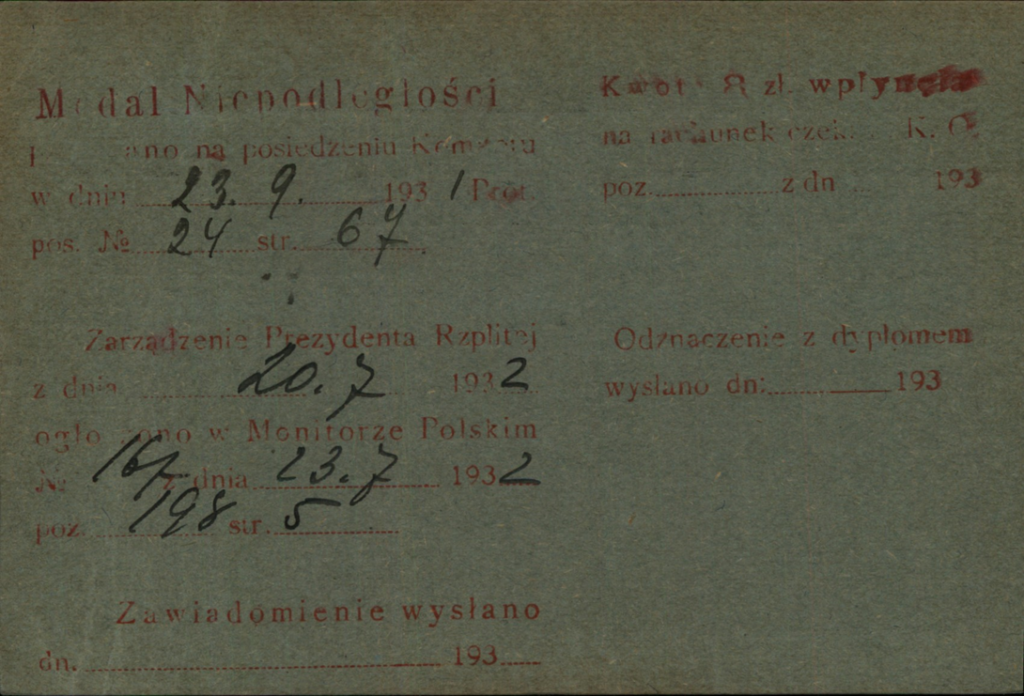 Medal Niepodległości
na posiedzeniu Komitetu
w dniu 23. 9. 1931 Prot.
pos. № 24 str. 67
Zarządzenie Prezydenta Rzplitej
z dnia 20. 7 1932
ogłoszono w Monitorze Polskim
№ 167 z dnia 23. 7 1932
poz. 198 str. 5
Zawiadomienie wysłano
dn. 193
Kwota 8 zł. wpłynęła
na rachunek czek. K. O.
poz. z dn 193
Odznaczenie z dyplomem
wysłano dn: 193